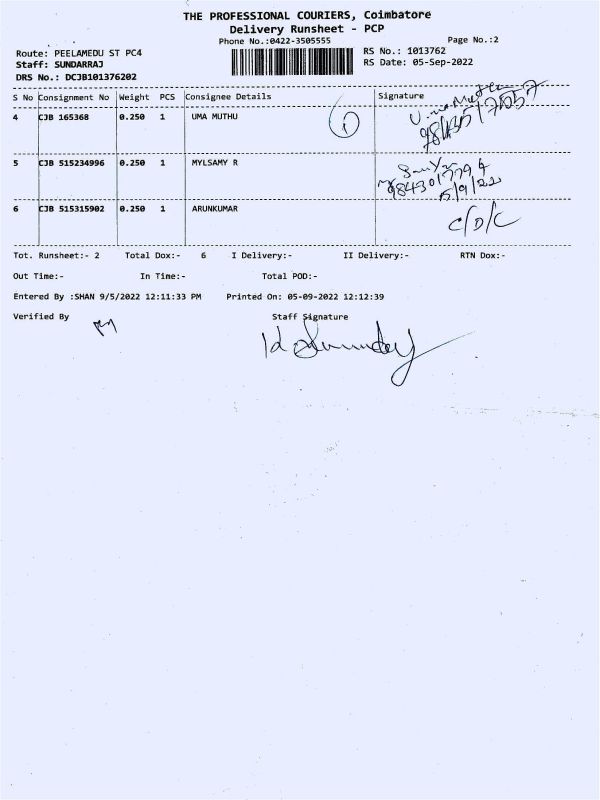 THE PROFESSIONAL COURIERS, Coimbatore
Delivery Runsheet - PCP
Phone No.:0422-3505555 Page No.:2
Route: PEELAMEDU ST PC4 RS No.: 1013762
Staff: SUNDARRAJ RS Date: 05-Sep-2022
DRS No.: DCJB101376202
S No Consignment No Weight PCS Consignee Details Signature
4 CJB 165368 0.250 1 UMA MUTHU
Uma Muthu
5 CJB 515234996 0.250 1 MYLSAMY R
5/9/22
6 CJB 515315902 0.250 1 ARUNKUMAR
C/D/C
Tot. Runsheet:- 2 Total Dox:- 6 I Delivery:- II Delivery:- RTN Dox:-
Out Time:- In Time:- Total POD:-
Entered By :SHAN 9/5/2022 12:11:33 PM Printed On: 05-09-2022 12:12:39
Verified By Staff Signature